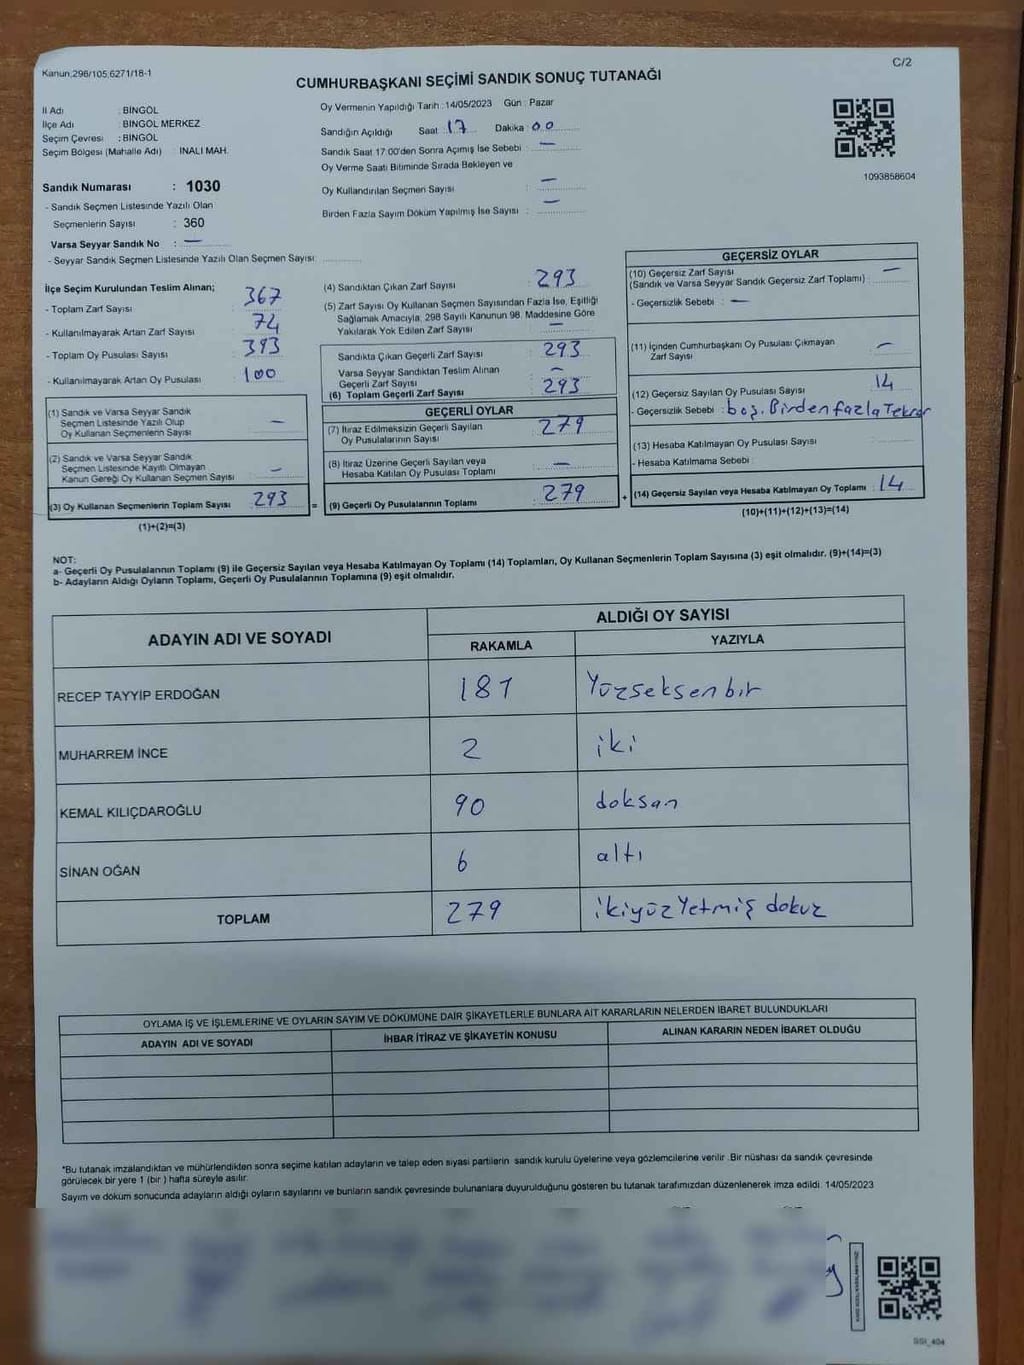 Kanun:298/105,6271/18-1
C/2
CUMHURBAŞKANI SEÇİMİ SANDIK SONUÇ TUTANAĞI
İl Adı : BİNGÖL
İlçe Adı : BİNGÖL MERKEZ
Seçim Çevresi : BİNGÖL
Seçim Bölgesi (Mahalle Adı) : İNALİ MAH.
Sandık Numarası : 1030
- Sandık Seçmen Listesinde Yazılı Olan
Seçmenlerin Sayısı : 360
Varsa Seyyar Sandık No : —
- Seyyar Sandık Seçmen Listesinde Yazılı Olan Seçmen Sayısı:
Oy Vermenin Yapıldığı Tarih : 14/05/2023 Gün : Pazar
Sandığın Açıldığı Saat : 17 Dakika : 00
Sandık Saat 17:00'den Sonra Açımış İse Sebebi : —
Oy Verme Saati Bitiminde Sırada Bekleyen ve
Oy Kullandırılan Seçmen Sayısı : —
Birden Fazla Sayım Döküm Yapılmış İse Sayısı : —
1093858604
İlçe Seçim Kurulundan Teslim Alınan;
- Toplam Zarf Sayısı : 367
- Kullanılmayarak Artan Zarf Sayısı : 74
- Toplam Oy Pusulası Sayısı : 393
- Kullanılmayarak Artan Oy Pusulası : 100
(1) Sandık ve Varsa Seyyar Sandık
Seçmen Listesinde Yazılı Olup
Oy Kullanan Seçmenlerin Sayısı : —
(2) Sandık ve Varsa Seyyar Sandık
Seçmen Listesinde Kayıtlı Olmayan
Kanun Gereği Oy Kullanan Seçmen Sayısı : —
(3) Oy Kullanan Seçmenlerin Toplam Sayısı : 293 =
(1)+(2)=(3)
(4) Sandıktan Çıkan Zarf Sayısı : 293
(5) Zarf Sayısı Oy Kullanan Seçmen Sayısından Fazla İse, Eşitliği
Sağlamak Amacıyla, 298 Sayılı Kanunun 98. Maddesine Göre
Yakılarak Yok Edilen Zarf Sayısı : —
Sandıkta Çıkan Geçerli Zarf Sayısı : 293
Varsa Seyyar Sandıktan Teslim Alınan
Geçerli Zarf Sayısı : —
(6) Toplam Geçerli Zarf Sayısı : 293
GEÇERLİ OYLAR
(7) İtiraz Edilmeksizin Geçerli Sayılan
Oy Pusulalarının Sayısı : 279
(8) İtiraz Üzerine Geçerli Sayılan veya
Hesaba Katılan Oy Pusulası Toplamı : —
(9) Geçerli Oy Pusulalarının Toplamı : 279 +
GEÇERSİZ OYLAR
(10) Geçersiz Zarf Sayısı
(Sandık ve Varsa Seyyar Sandık Geçersiz Zarf Toplamı) : —
- Geçersizlik Sebebi : —
(11) İçinden Cumhurbaşkanı Oy Pusulası Çıkmayan
Zarf Sayısı : —
(12) Geçersiz Sayılan Oy Pusulası Sayısı : 14
- Geçersizlik Sebebi : boş. Birden fazla Tekrar
(13) Hesaba Katılmayan Oy Pusulası Sayısı
- Hesaba Katılmama Sebebi :
(14) Geçersiz Sayılan veya Hesaba Katılmayan Oy Toplamı : 14
(10)+(11)+(12)+(13)=(14)
NOT:
a- Geçerli Oy Pusulalarının Toplamı (9) ile Geçersiz Sayılan veya Hesaba Katılmayan Oy Toplamı (14) Toplamları, Oy Kullanan Seçmenlerin Toplam Sayısına (3) eşit olmalıdır. (9)+(14)=(3)
b- Adayların Aldığı Oyların Toplamı, Geçerli Oy Pusulalarının Toplamına (9) eşit olmalıdır.
ADAYIN ADI VE SOYADI
ALDIĞI OY SAYISI
RAKAMLA YAZIYLA
RECEP TAYYİP ERDOĞAN 181 Yüzseksenbir
MUHARREM İNCE 2 iki
KEMAL KILIÇDAROĞLU 90 doksan
SİNAN OĞAN 6 altı
TOPLAM 279 ikiyüzYetmiş dokuz
OYLAMA İŞ VE İŞLEMLERİNE VE OYLARIN SAYIM VE DÖKÜMÜNE DAİR ŞİKAYETLERLE BUNLARA AİT KARARLARIN NELERDEN İBARET BULUNDUKLARI
ADAYIN ADI VE SOYADI İHBAR İTİRAZ VE ŞİKAYETİN KONUSU ALINAN KARARIN NEDEN İBARET OLDUĞU
*Bu tutanak imzalandıktan ve mühürlendikten sonra seçime katılan adayların ve talep eden siyasi partilerin sandık kurulu üyelerine veya gözlemcilerine verilir .Bir nüshası da sandık çevresinde
görülecek bir yere 1 (bir ) hafta süreyle asılır.
Sayım ve döküm sonucunda adayların aldığı oyların sayılarını ve bunların sandık çevresinde bulunanlara duyurulduğunu gösteren bu tutanak tarafımızdan düzenlenerek imza edildi. 14/05/2023
SSİ_404